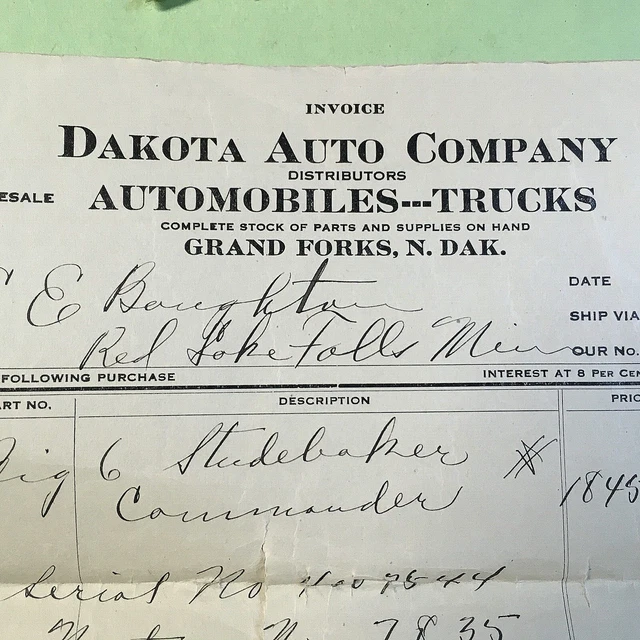 INVOICE
DAKOTA AUTO COMPANY
DISTRIBUTORS
ESALE AUTOMOBILES---TRUCKS
COMPLETE STOCK OF PARTS AND SUPPLIES ON HAND
GRAND FORKS, N. DAK.
DATE
E Boughton
SHIP VIA
Red Lake Falls Minn OUR No.
FOLLOWING PURCHASE INTEREST AT 8 PER CEN
ART NO. DESCRIPTION PRIC
Big 6 Studebaker # 1845
Commander
Serial No
No 7835